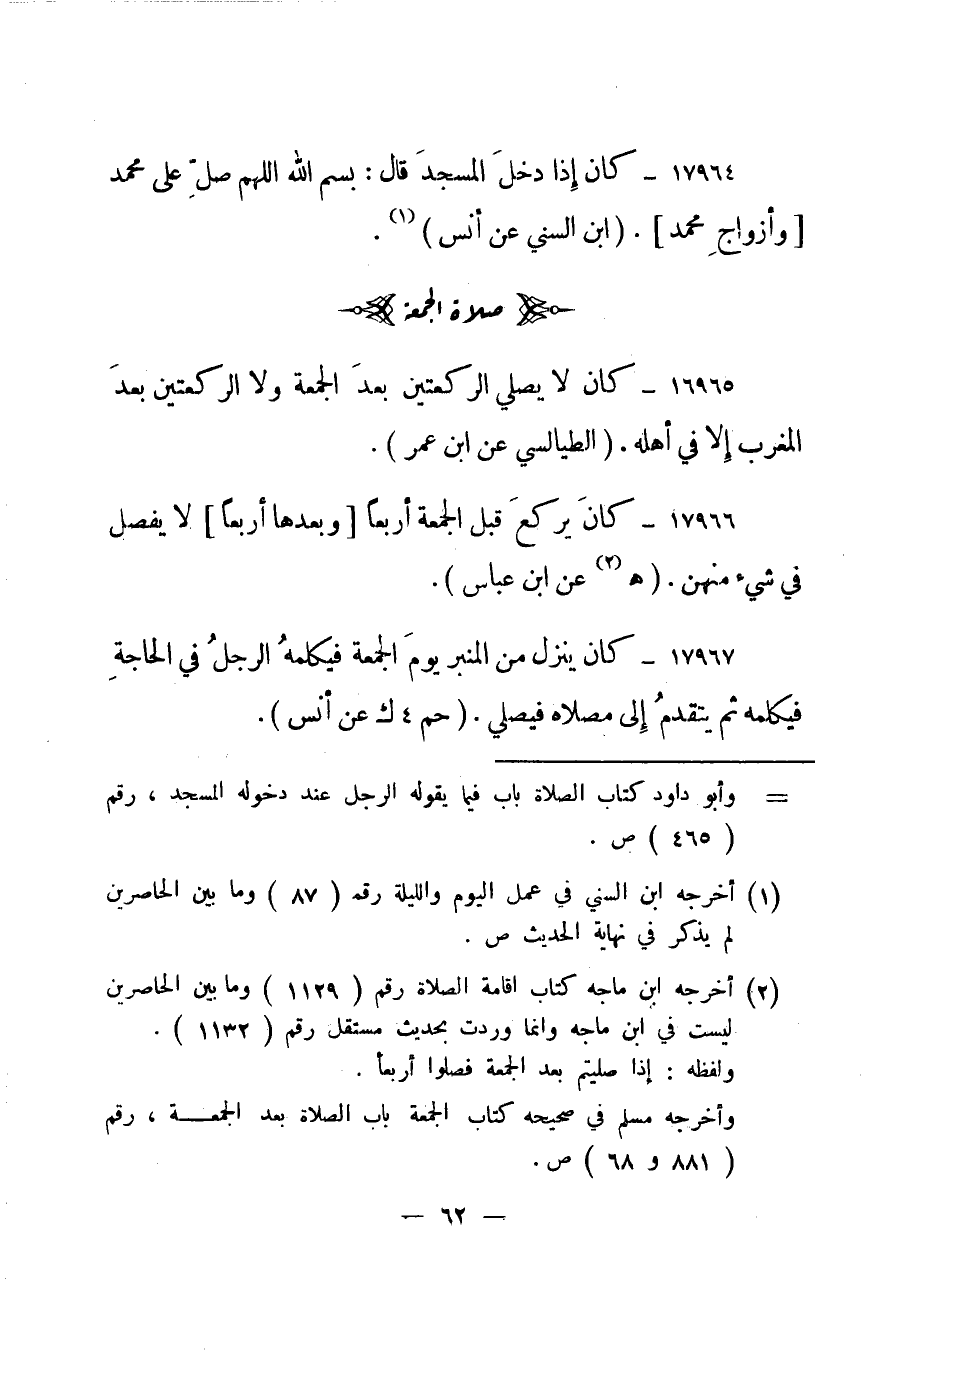 ١٧٩٦٤ ـ كان إذا دخلَ المسجدَ قال : بسم الله اللهم صلِّ على محمد
[ وأزواجِ محمد ] . ( ابن السني عن أنس ) (١) .
صلاة الجمعة
١٦٩٦٥ ـ كان لا يصلي الركعتين بعدَ الجمعة ولا الركعتين بعدَ
المغرب إلا في أهله . ( الطيالسي عن ابن عمر ) .
١٧٩٦٦ ـ كانَ يركعَ قبل الجمعة أربعاً [ وبعدها أربعاً ] لا يفصل
في شيء منهن . ( ه (٢) عن ابن عباس ) .
١٧٩٦٧ ـ كان ينزل من المنبر يومَ الجمعة فيكلمهُ الرجلُ في الحاجةِ
فيكلمه ثم يتقدمُ إلى مصلاه فيصلي . ( حم ٤ ك عن أنس ) .
= وأبو داود كتاب الصلاة باب فيما يقوله الرجل عند دخوله المسجد ، رقم
( ٤٦٥ ) ص .
(١) أخرجه ابن السني في عمل اليوم والليلة رقمه ( ٨٧ ) وما بين الحاصرين
لم يذكر في نهاية الحديث ص .
(٢) أخرجه ابن ماجه كتاب اقامة الصلاة رقم ( ١١٢٩ ) وما بين الحاصرين
ليست في ابن ماجه وانما وردت بحديث مستقل رقم ( ١١٣٢ ) .
ولفظه : إذا صليتم بعد الجمعة فصلوا أربعاً .
وأخرجه مسلم في صحيحه كتاب الجمعة باب الصلاة بعد الجمعـــة ، رقم
( ٨٨١ و ٦٨ ) ص .
— ٦٢ —